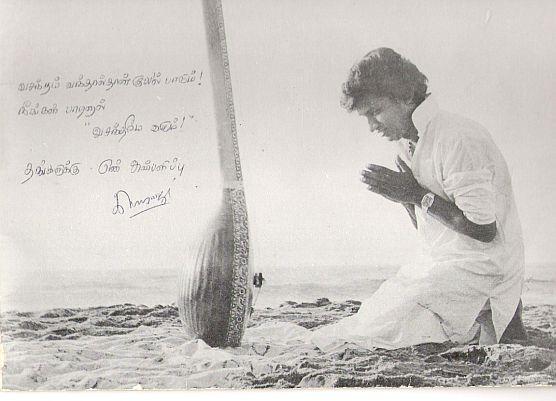 வசந்தம் வந்தால்தான் குயில் பாடும்!
நீங்கள் பாடினால்
"வசந்தமே வரும்!"
தங்களுக்கு - என் அன்பளிப்பு